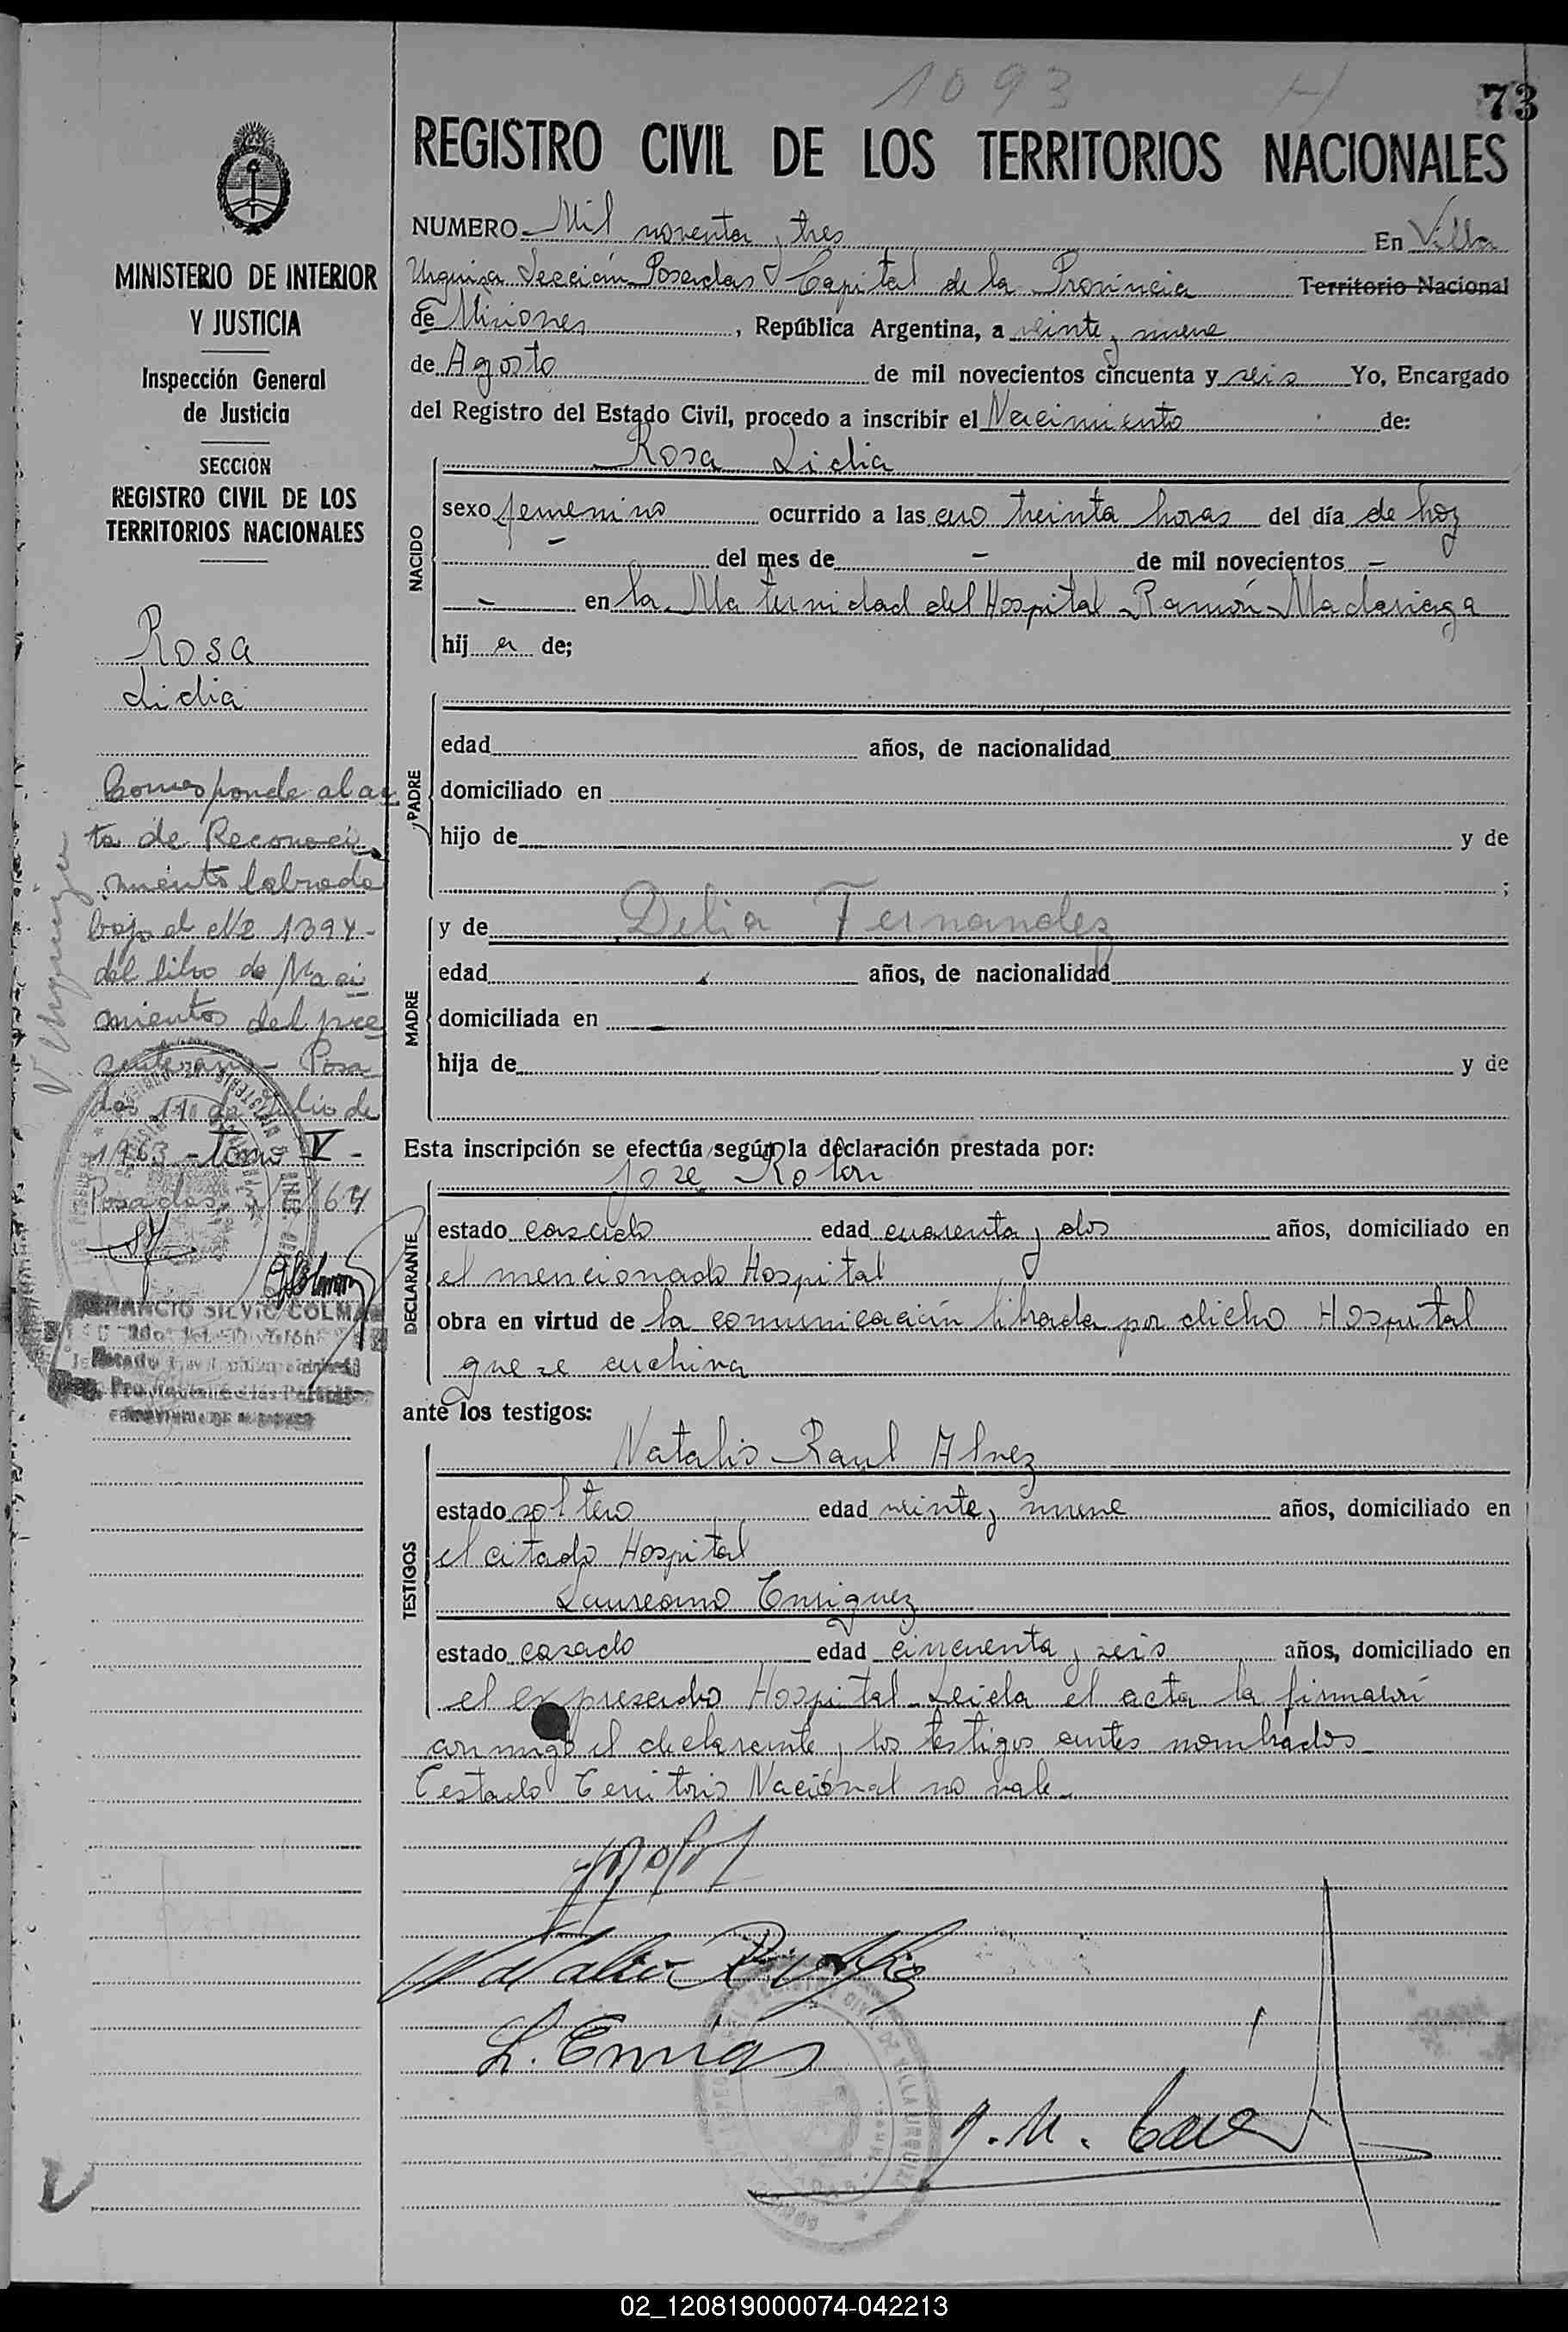 1093 H
73
REGISTRO CIVIL DE LOS TERRITORIOS NACIONALES
NUMERO Mil noventa y tres En Villa
Urquiza Sección Posadas Capital de la Provincia Territorio Nacional
de Misiones, República Argentina, a veinte y nueve
de Agosto de mil novecientos cincuenta y seis Yo, Encargado
del Registro del Estado Civil, procedo a inscribir el Nacimiento de:
Rosa Lidia
NACIDO
sexo femenino ocurrido a las cero treinta horas del día de hoy
- del mes de - de mil novecientos -
- en la Maternidad del Hospital Ramón Madariaga
hij a de;
PADRE
edad años, de nacionalidad
domiciliado en
hijo de y de
;
MADRE
y de Delia Fernandez
edad años, de nacionalidad
domiciliada en
hija de y de
Esta inscripción se efectúa según la declaración prestada por:
DECLARANTE
José
estado casado edad cuarenta y dos años, domiciliado en
el mencionado Hospital
obra en virtud de la comunicación librada por dicho Hospital
que se archiva
ante los testigos:
TESTIGOS
Natalio Raul Alvez
estado soltero edad veinte y nueve años, domiciliado en
el citado Hospital
Laureano Enriquez
estado casado edad cincuenta y seis años, domiciliado en
el expresado Hospital Leida el acta la firman
conmigo el declarante y los testigos antes nombrados
Testado Territorio Nacional no vale
MINISTERIO DE INTERIOR
Y JUSTICIA
Inspección General
de Justicia
SECCION
REGISTRO CIVIL DE LOS
TERRITORIOS NACIONALES
Rosa
Lidia
Corresponde al ac
ta de Reconoci
miento labrada
bajo el Nº 1394-
del libro de Naci
mientos del pre
sente año - Posa
das 11 de Julio de
1963 - tomo V -
Posadas 64
V Urquiza
SILVIO COLMAN
02_120819000074-042213